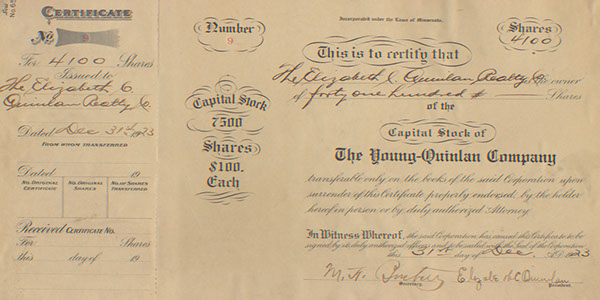 CERTIFICATE
No. 9
For 4100 Shares
Issued to
The Elizabeth C.
Quinlan Realty Co.
Dated Dec 31st 1923
FROM WHOM TRANSFERRED
Dated 19
NO. ORIGINAL CERTIFICATE
NO. ORIGINAL SHARES
NO. OF SHARES TRANSFERRED
Received CERTIFICATE No.
For Shares
this day of 19
Number
9
Capital Stock
7500
Shares
$100.
Each
Incorporated under the Laws of Minnesota.
Shares
4100
This is to certify that
The Elizabeth C. Quinlan Realty Co. is the owner
of forty one hundred Shares
of the
Capital Stock of
The Young-Quinlan Company
transferable only on the books of the said Corporation upon
surrender of this Certificate properly endorsed, by the holder
hereof in person or by duly authorized Attorney.
In Witness Whereof, the said Corporation has caused this Certificate to be
signed by its duly authorized officers and to be sealed with the Seal of the Corporation
this 31st day of Dec. 1923
Secretary
Elizabeth C Quinlan
President